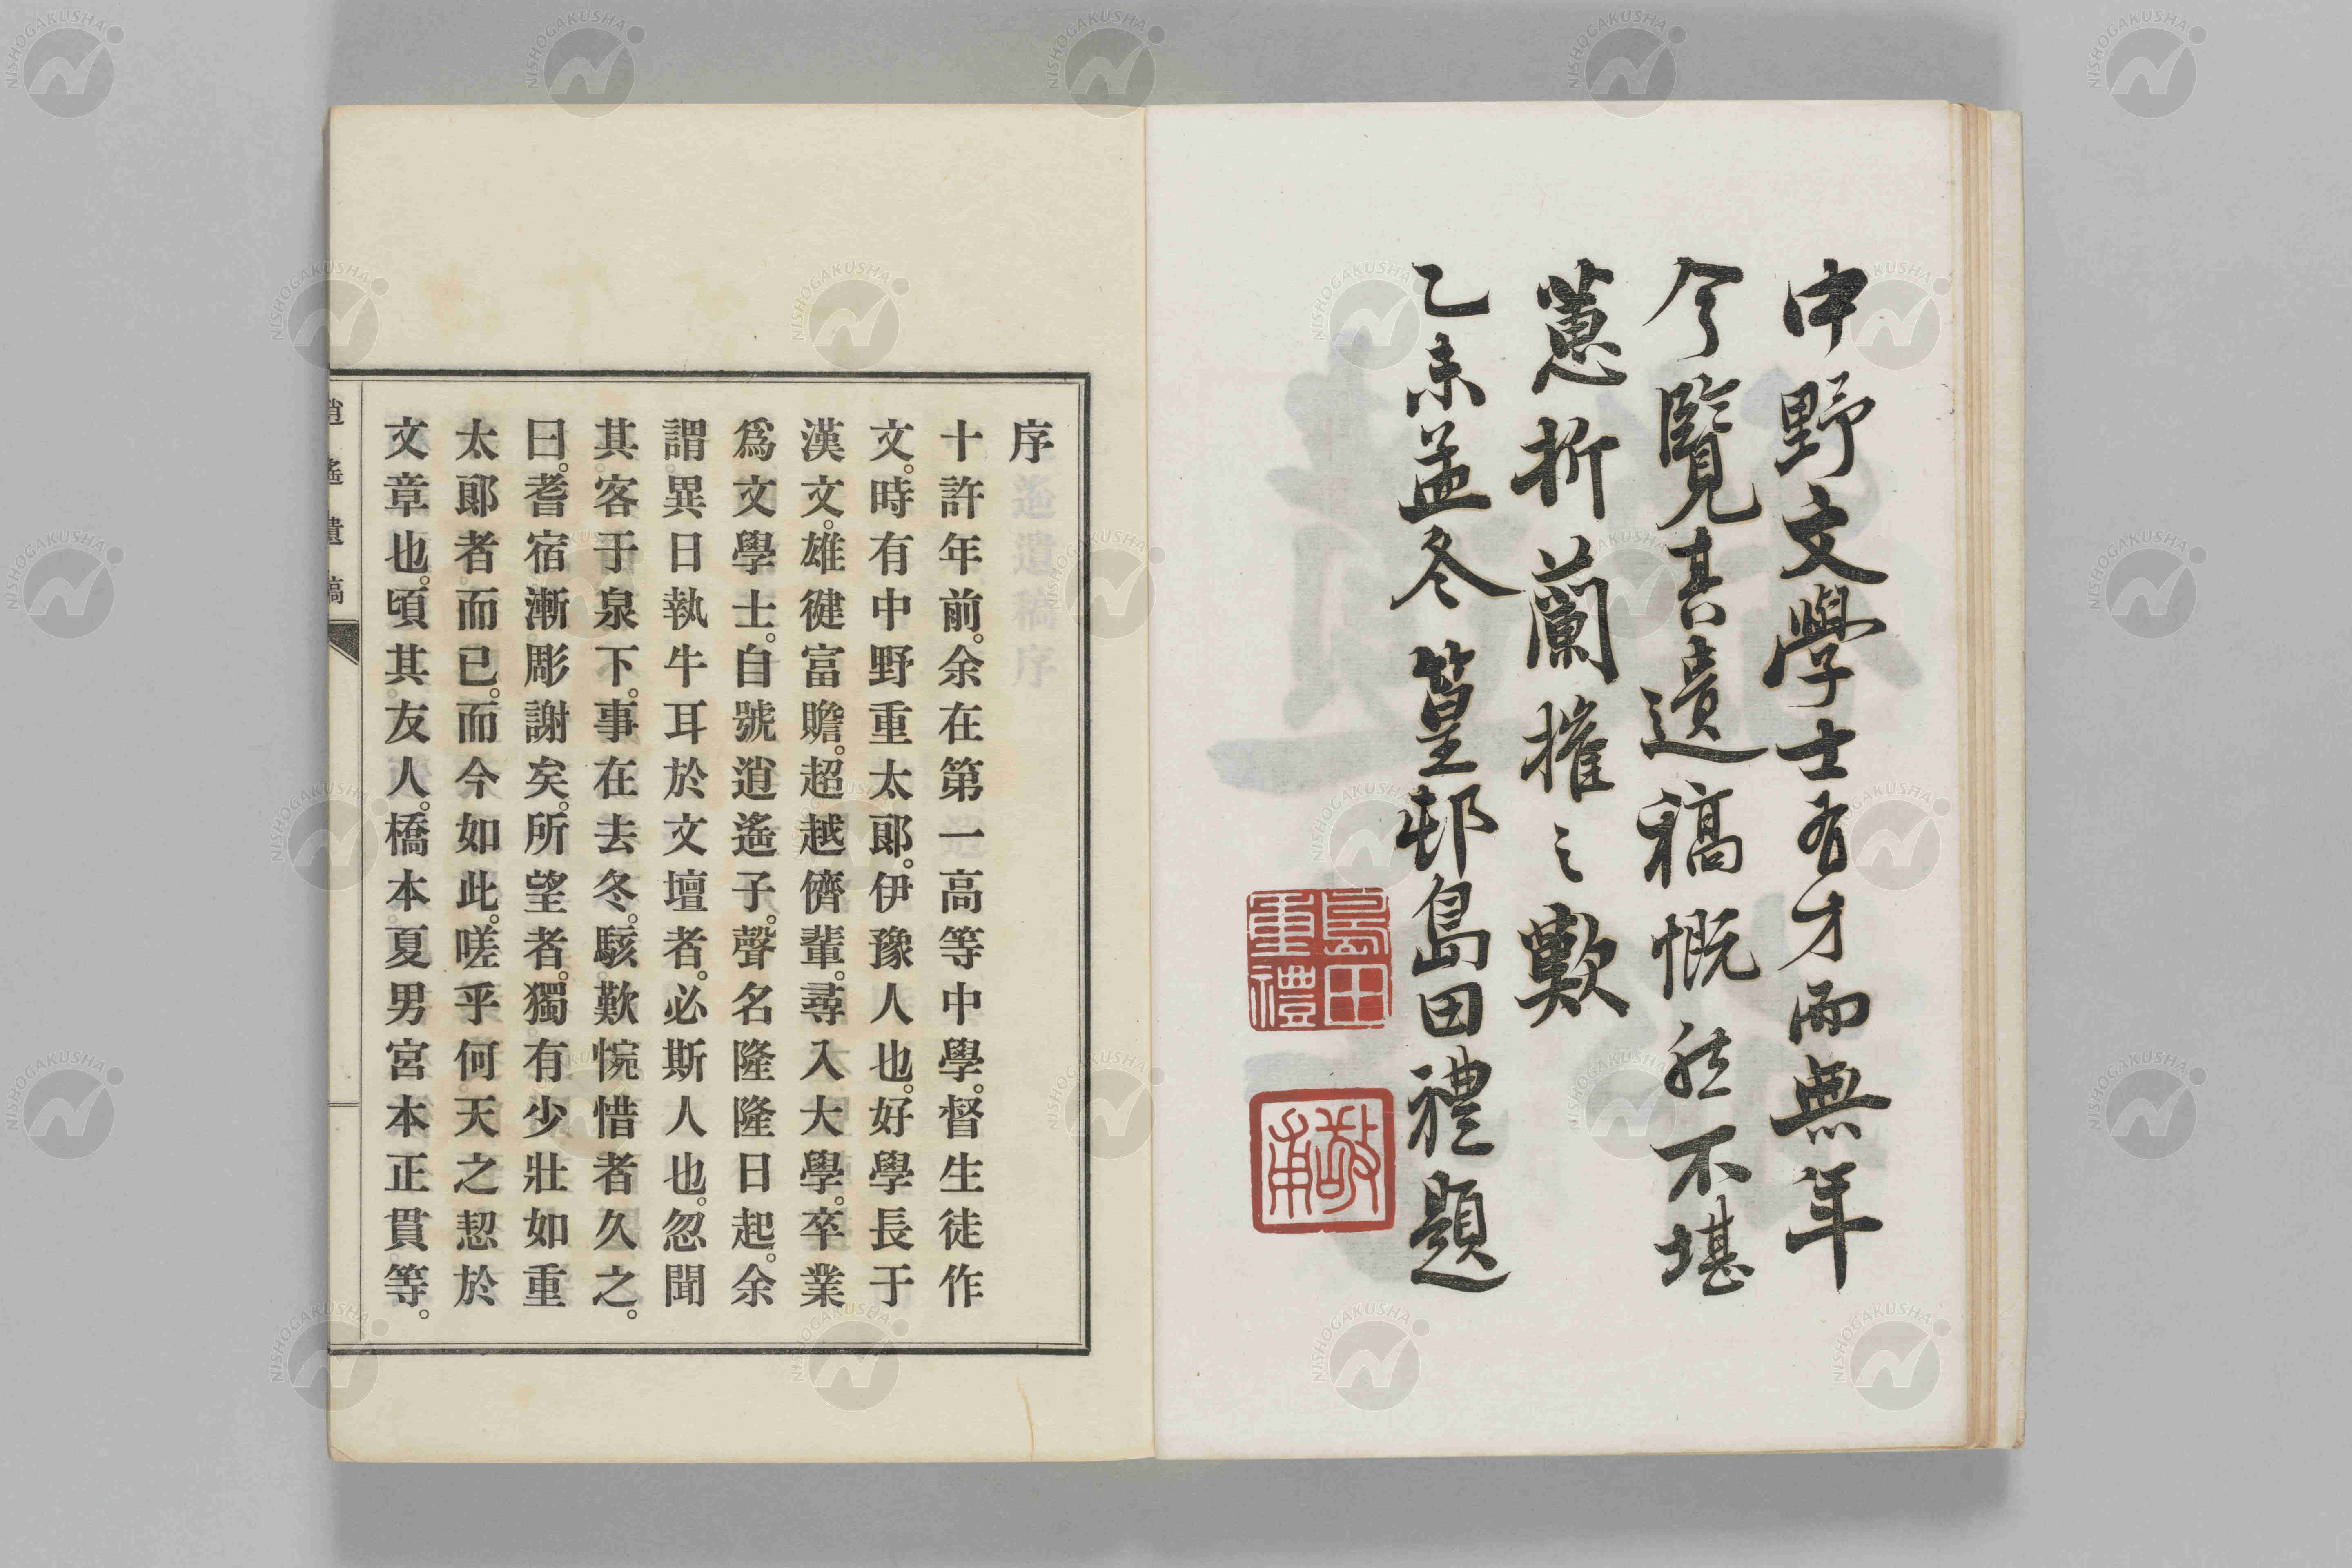 中野文學士有才而無年
今覧其遺稿慨然不堪
蕙折蘭摧之歎
乙未孟冬 篁邨島田禮題
島田重禮
敬甫
序
十許年前。余在第一高等中學。督生徒作
文。時有中野重太郎。伊豫人也。好學長于
漢文。雄健富贍。超越儕輩。尋入大學。卒業
爲文學士。自號逍遙子。聲名隆隆日起。余
謂異日執牛耳於文壇者。必斯人也。忽聞
其客于泉下。事在去冬。駭歎惋惜者久之。
曰。耆宿漸彫謝矣。所望者。獨有少壯如重
太郎者而已。而今如此。嗟乎何天之恝於
文章也。頃其友人。橋本夏男宮本正貫等。
逍遙遺稿
NISHOGAKUSHA
NISHOGAKUSHA
NISHOGAKUSHA
NISHOGAKUSHA
NISHOGAKUSHA